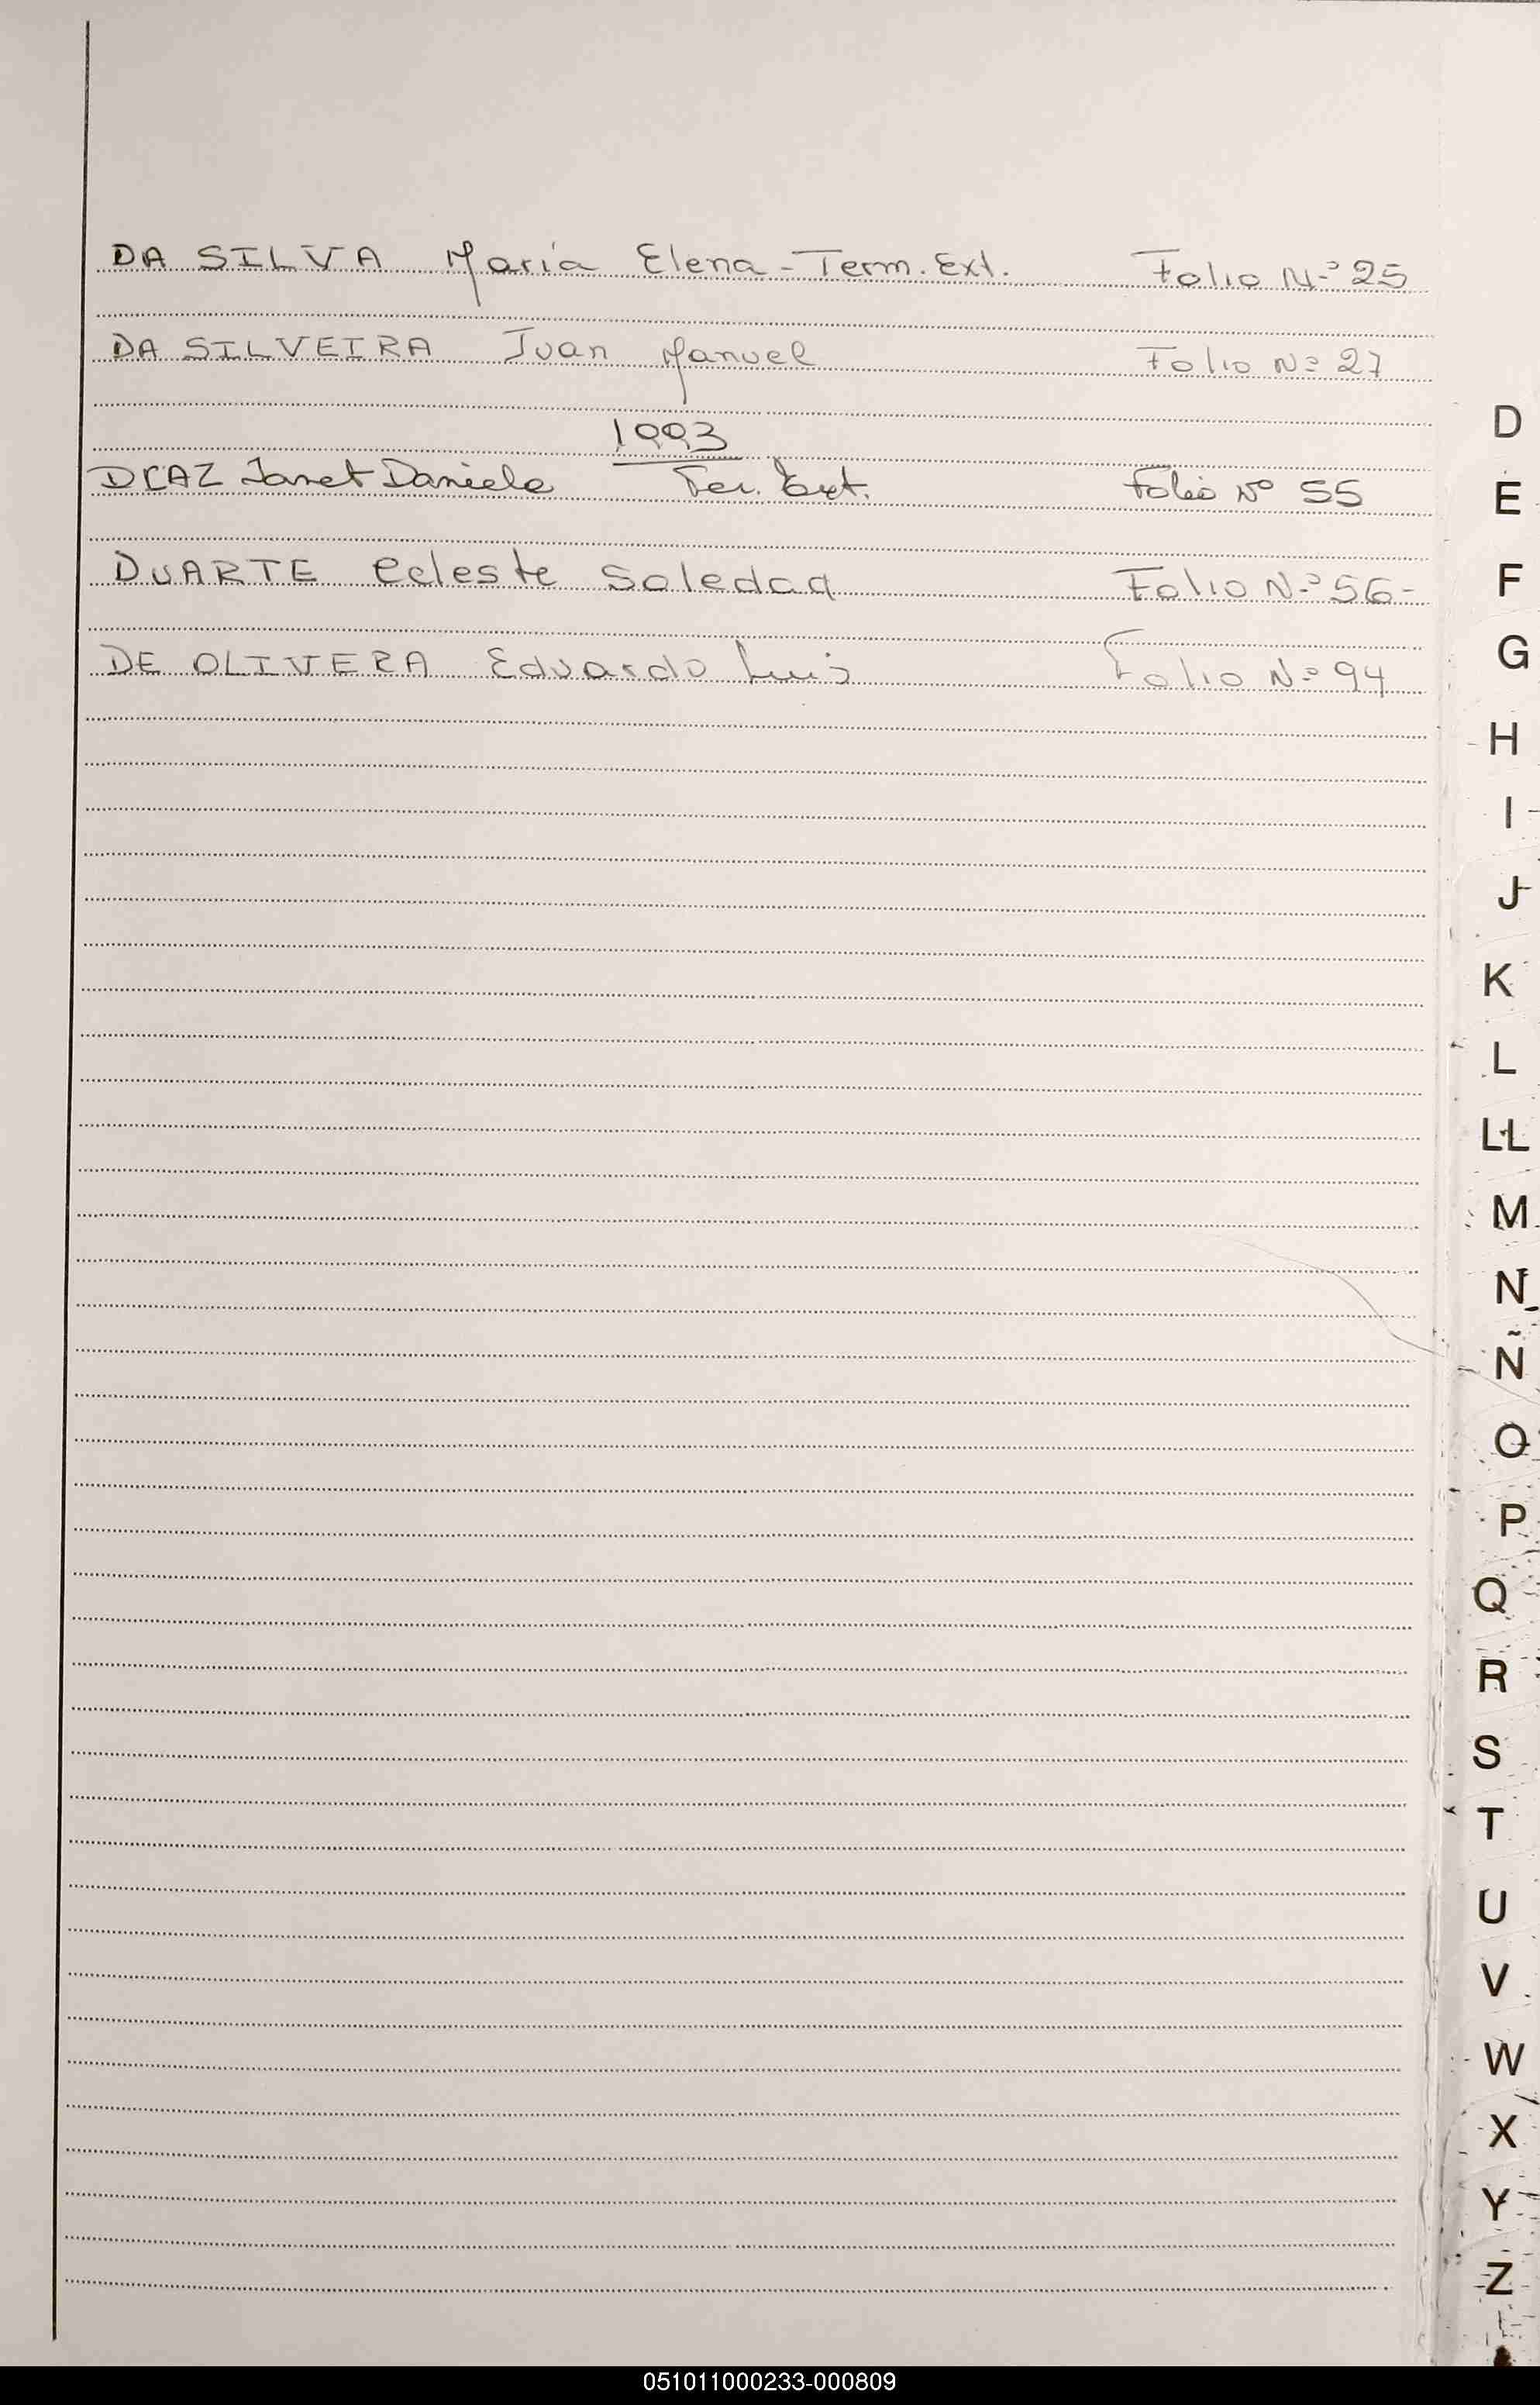 DA SILVA María Elena - Term. Ext. Folio Nº 25
DA SILVEIRA Juan Manuel Folio Nº 27
1993
DIAZ Janet Daniela Ter. Ext. Folio Nº 55
DUARTE Celeste Soledad Folio Nº 56-
DE OLIVERA Eduardo Luis Folio Nº 94
D
E
F
G
H
I
J
K
L
LL
M
N
Ñ
O
P
Q
R
S
T
U
V
W
X
Y
Z
051011000233-000809